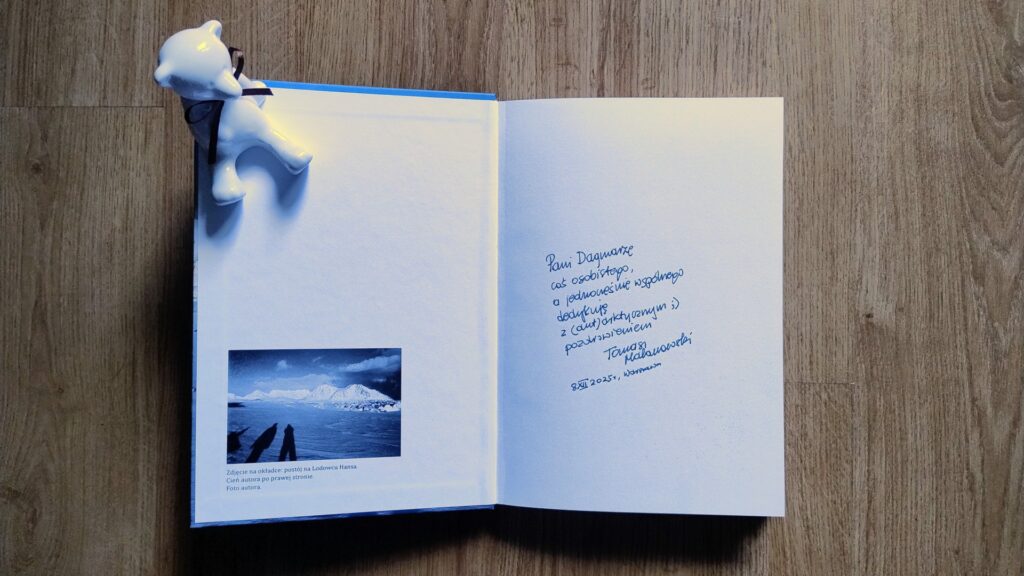 Zdjęcie na okładce: postój na Lodowcu Hansa
Cień autora po prawej stronie
Foto autora.
Pani Dagmarze
coś osobistego,
a jednocześnie wspólnego
dedykuję
z (ant)arktycznym ;)
pozdrowieniem
Tomasz
8 XII 2025 r., Warszawa